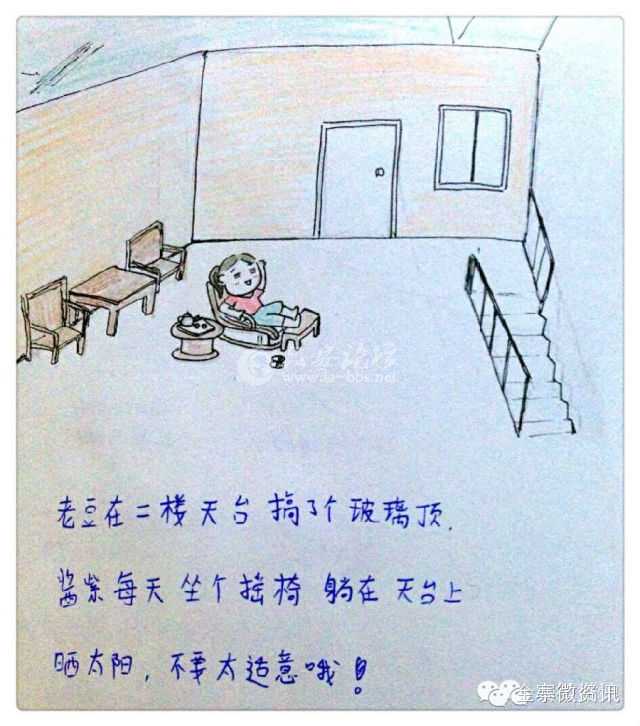 www.la-bbs.net
老豆在二楼天台搞了个玻璃顶.
酱紫每天坐个摇椅躺在天台上
晒太阳，不要太适意哦！
金寨微资讯